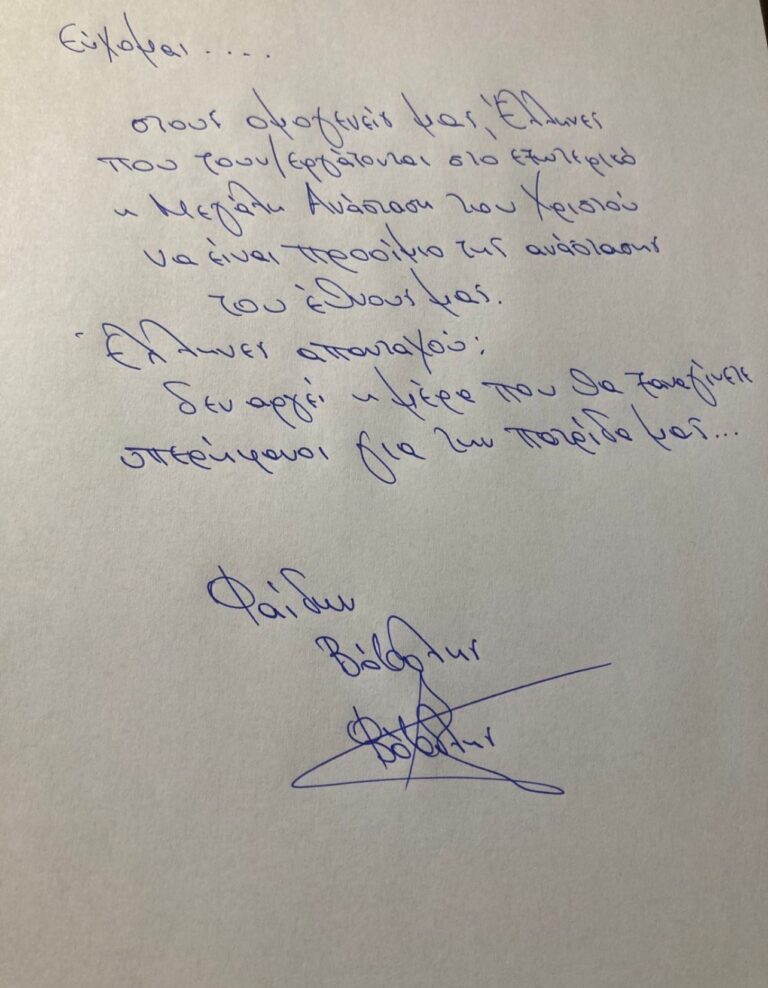 Εύχομαι ....
στους ομογενείς μας, Έλληνες
που ζουν/εργάζονται στο εξωτερικό
η Μεγάλη Ανάσταση του Χριστού
να είναι προοίμιο της ανάστασης
του έθνους μας.
Έλληνες απανταχού:
δεν αργεί η μέρα που θα ξαναγίνετε
υπερήφανοι για την πατρίδα μας...
Φαίδων